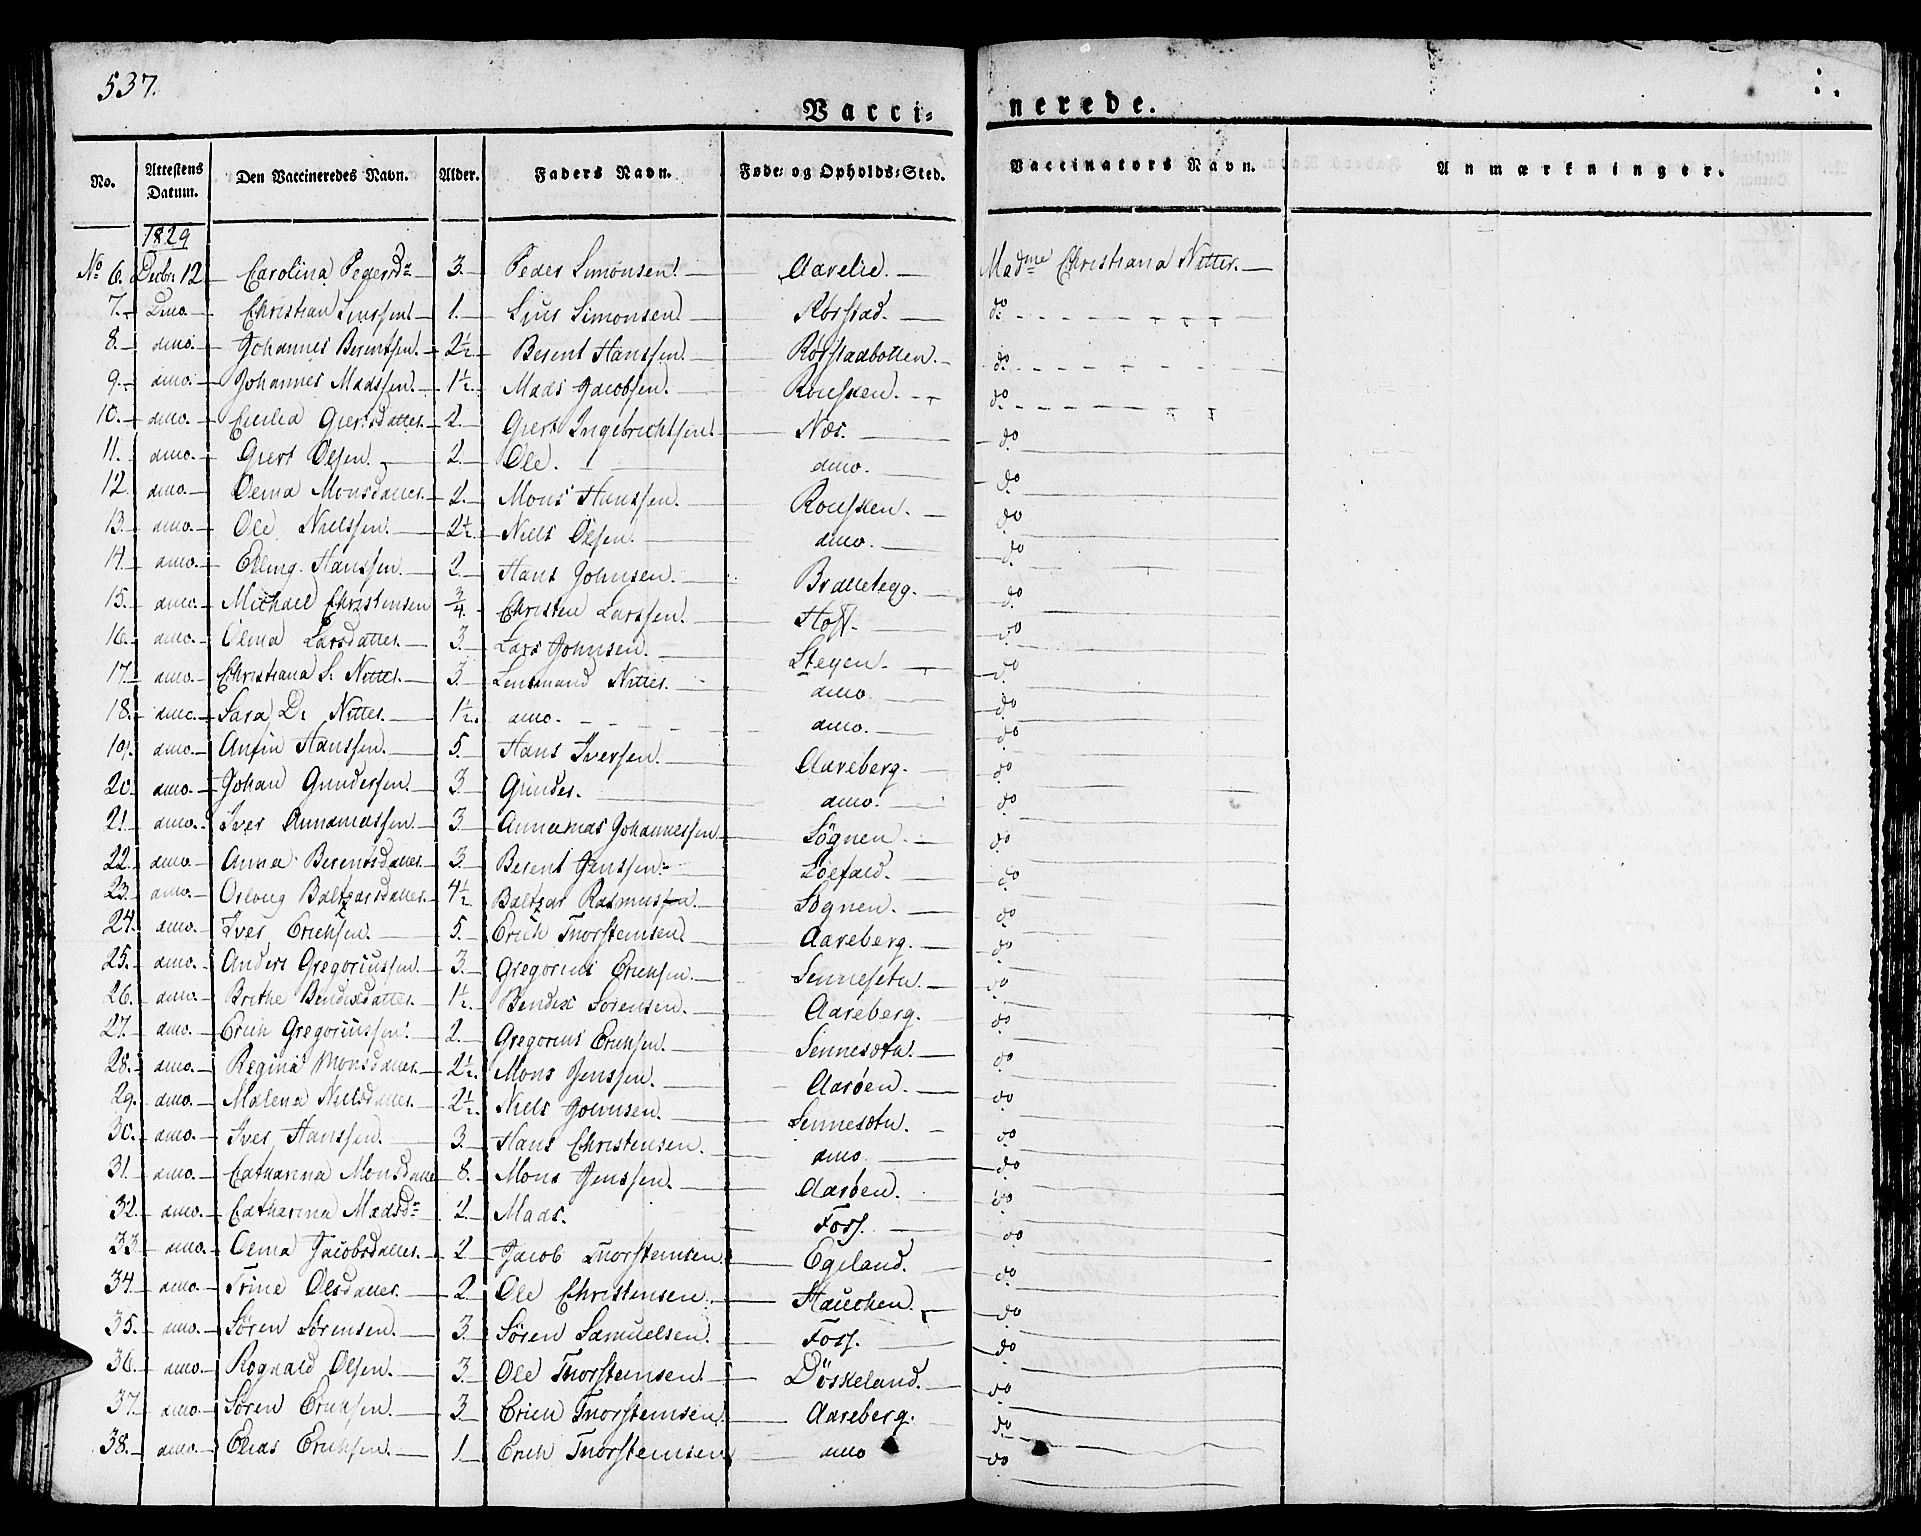 537.
Vacci= nerede.
No. Attestens Datum. Den Vaccineredes Navn. Alder. Faders Navn. Føde= og Opholds=Sted. Vaccinators Navn. Anmærkninger.
1829
No 6. Decbr: 12 Carolina Pedersdr 3. Peder Simonsen. Aarelie. Madme Christiana Nitter.
7. Dmo Christian 1. Simonsen Rørstad. do
8. dmo. Johannes Berentsen. 2½ Berent Hanssen. Rørstadbotten. do
9. dmo. Johannes Madssen. 1½ Mads Jacobsen. Rousken. do
10. dmo. Cecilia Giertsdatter. 2. Giert Ingebrichtsen. Næs. do
11. dmo. Giert Olsen. 2. Ole. dmo. do
12. dmo. Oema Monsdatter. 2. Mons Hanssen. Rousken. do
13. dmo. Ole Nielssen. 2½ Niels Olsen. dmo. do
14. dmo. Elling Hanssen. 2. Hans Johnsen. Brattetegg. do
15. dmo. Michael Christensen ¾ Christen Larssen. Hoff. do
16. dmo. Larsdatter. 3. Lars Johnsen. Steyen. do
17. dmo. Christiana S. Nitter. 3. Lensmand Nitter. dmo. do
18. dmo. Sara D. Nitter. 1½. dmo. dmo. do
19. dmo. Anfin Hanssen. 5. Hans Iversen. Aareberg. do
20. dmo. Johan Gunderssen. 3 Gunder. dmo. do
21. dmo. Iver Annaniassen. 3. Annanias Johannessen Sögnen. do
22. dmo. Anna Berentsdatter. 3. Berent Jenssen. do
23. dmo. Baltzarsdatter. 4½ Baltzar Rasmussen. Søgnen. do
24. dmo. Iver Erichsen. 5. Erich Thorsteinsen. Aareberg. do
25. dmo. Anders Gregoriussen. 3. Gregorius Erichsen. do
26. dmo. Brithe Bendixdatter. 1½. Bendix Sørensen. Aareberg. do
27. dmo. Erich Gregoriussen. 2. Gregorius Erichsen. Sennesætn. do
28. dmo. Regina Monsdatter. 2½. Mons Jenssen. Aarøen. do
29. dmo. Malena Nielsdatter. 2½. Niels Johnsen. Sennesætn. do
30. dmo. Iver Hanssen. 3. Hans Christensen. dmo. do
31. dmo. Catharina Monsdatter 8. Mons Jenssen. Aarøen. do
32. dmo. Catharina Madsdr 2. Mads. Foss. do
33. dmo. Jacobsdatter. 2 Jacob Thorsteinsen Egeland. do
34. dmo. Trine Olsdatter. 2 Ole Christensen. do
35. dmo. Søren Sørensen. 3. Søren Samuelsen. Foss. do
36. dmo. Rognald Olsen. 3. Ole Thorsteinsen. Döskeland. do
37. dmo. Søren Erichsen. 3 Erich Thorsteinsen Aareberg. do
38. dmo. Elias Erichsen. 1 Erich Thorsteinsen dmo do